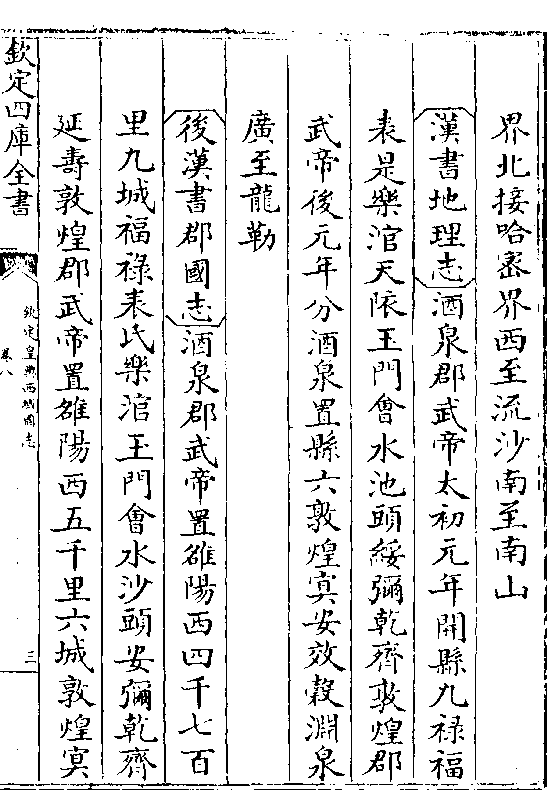 界北接哈密界西至流沙南至南山
漢書地理志酒泉郡武帝太初元年開縣九禄福
表是樂涫天陔玉門會水池頭綏彌乾齊敦煌郡
武帝後元年分酒泉置縣六敦煌冥安效穀淵泉
廣至龍勒
後漢書郡國志酒泉郡武帝置雒陽西四千七百
里九城福禄表氏樂涫玉門會水沙頭安彌乾齊
延壽敦煌郡武帝置雒陽西五千里六城敦煌冥
欽定四庫全書
欽定皇輿西域圖志
卷八
三